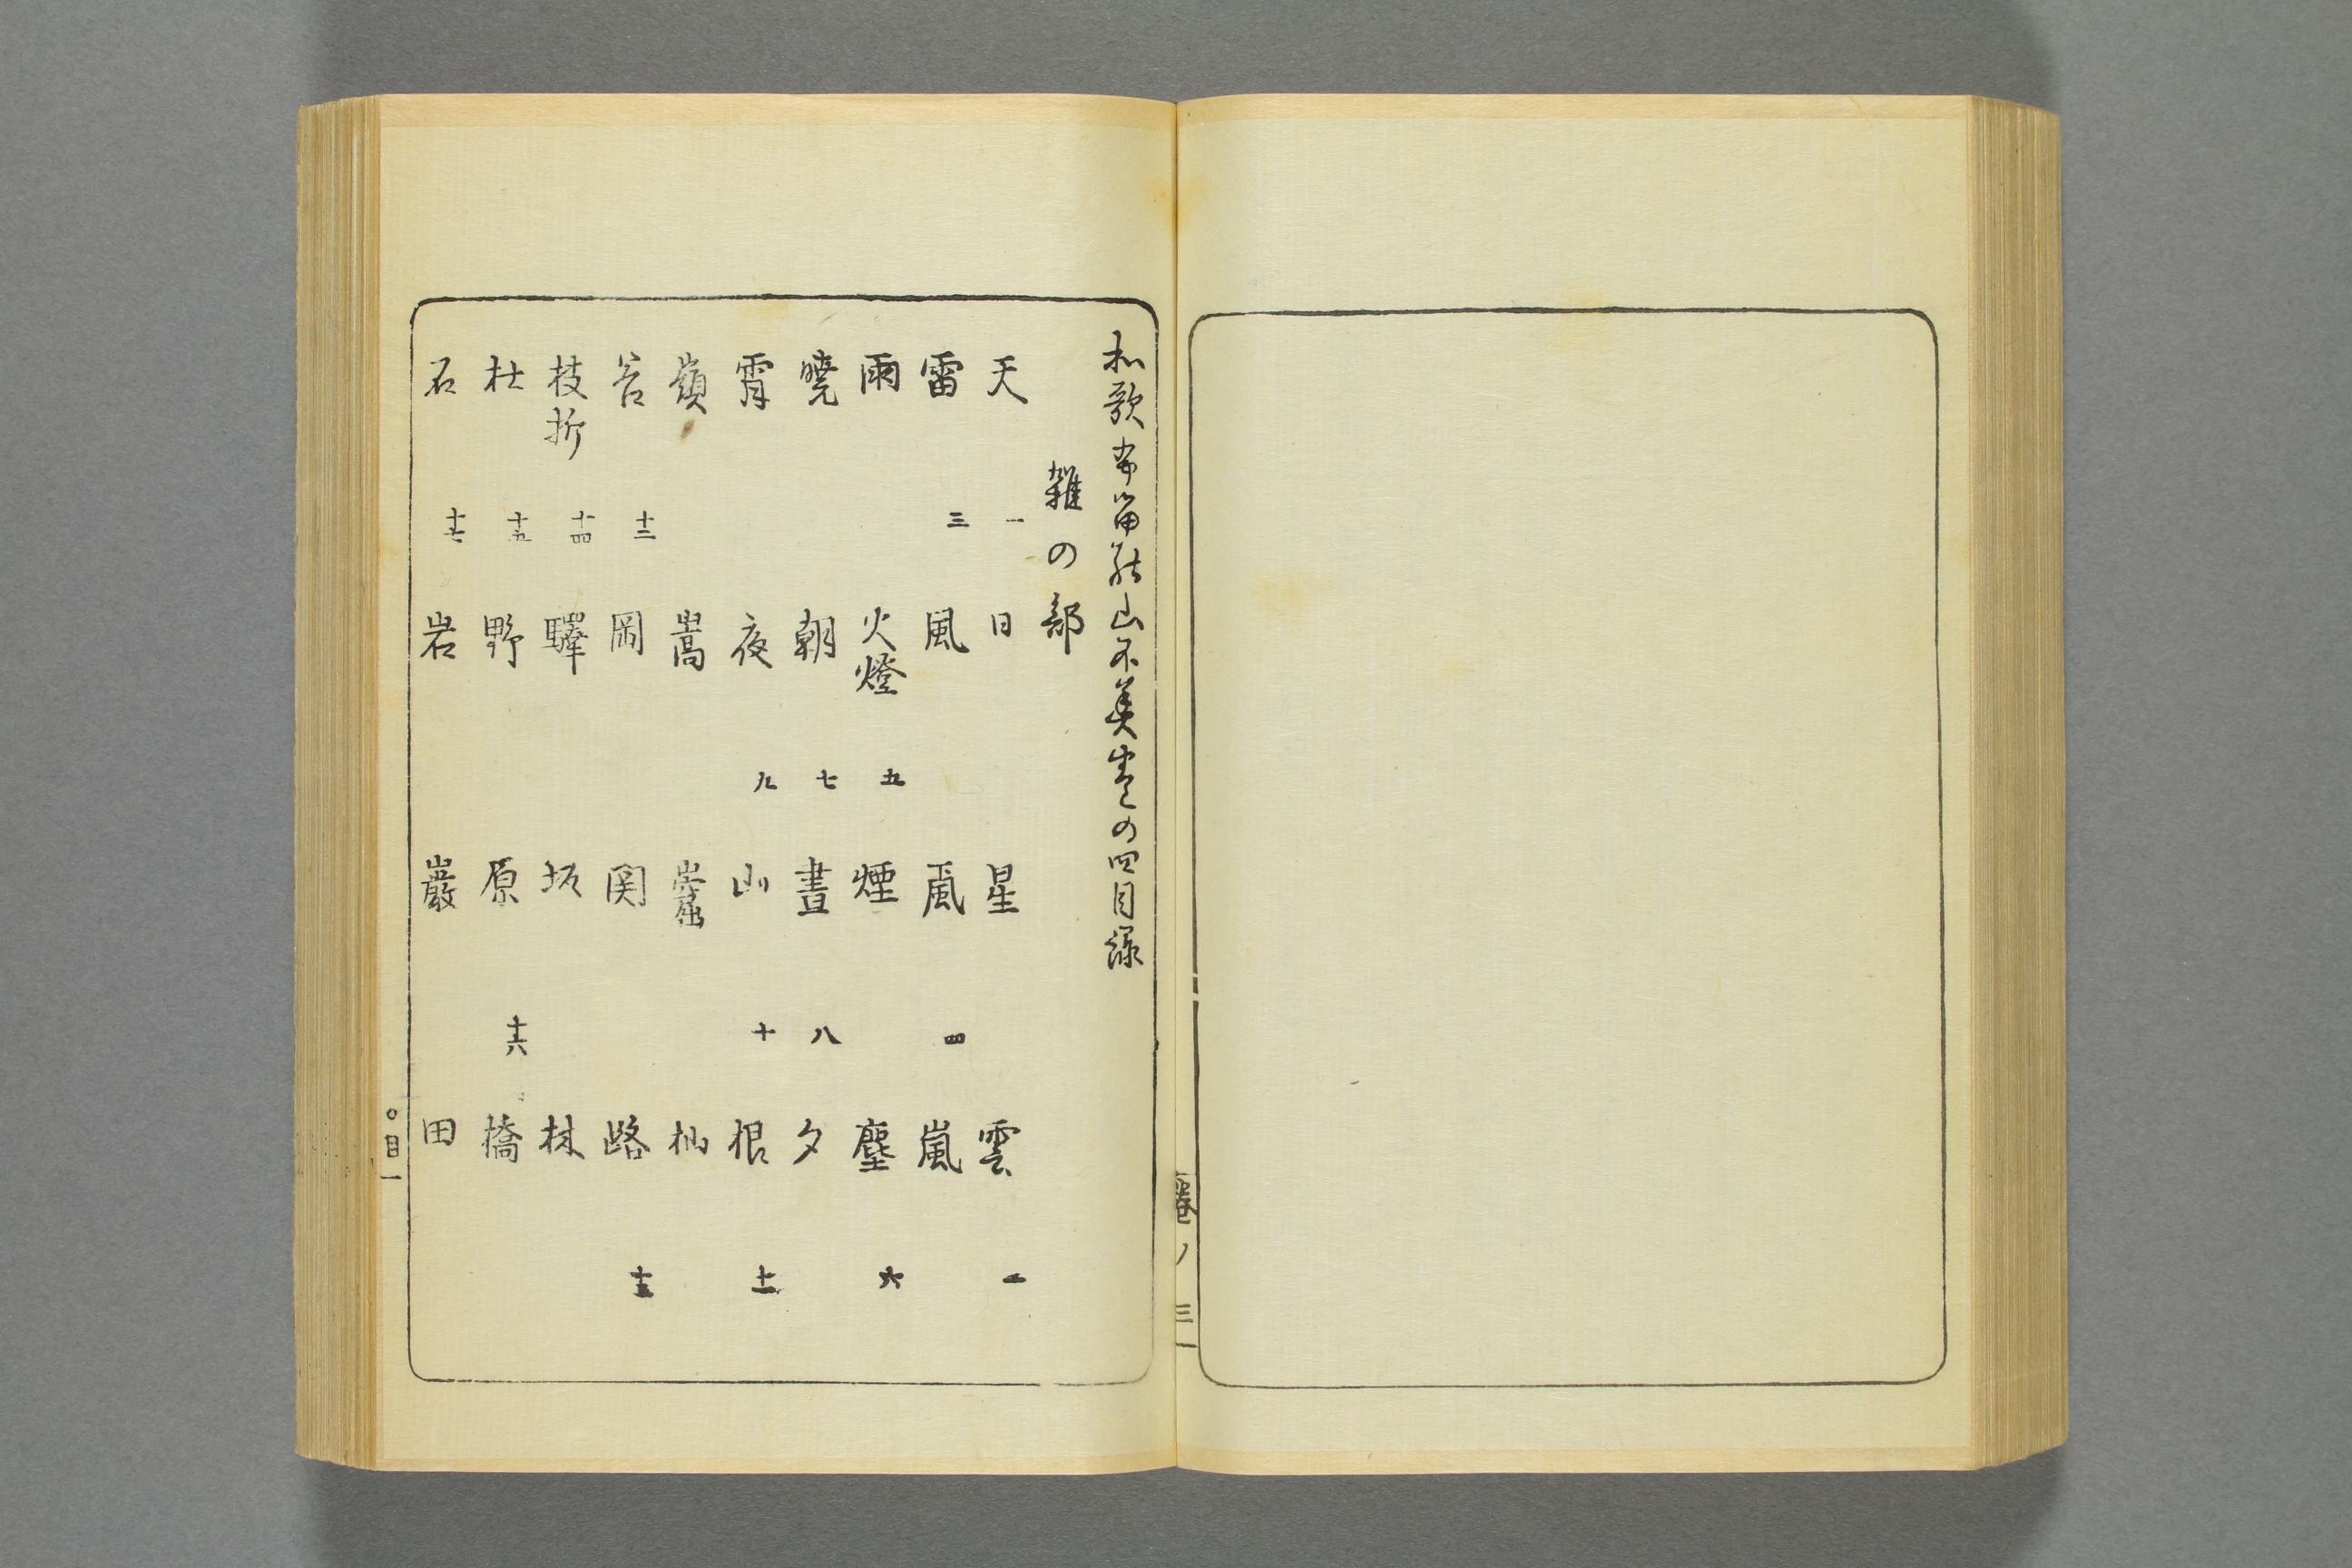 巻ノ三
和歌布留能山不美巻の四目録
雑の部
天 一 日 星 雲 二
雷 三 風 颪 四 嵐
雨 火燈 五 煙 塵 六
曉 朝 七 晝 八 夕
霄 夜 九 山 十 根 十一
嶺 嵩 仙
谷 十二 岡 関 路 十三
枝折 十四 驛 坂 林
杜 十五 野 原 十六 橋
石 十七 岩 巖 田
〇目一